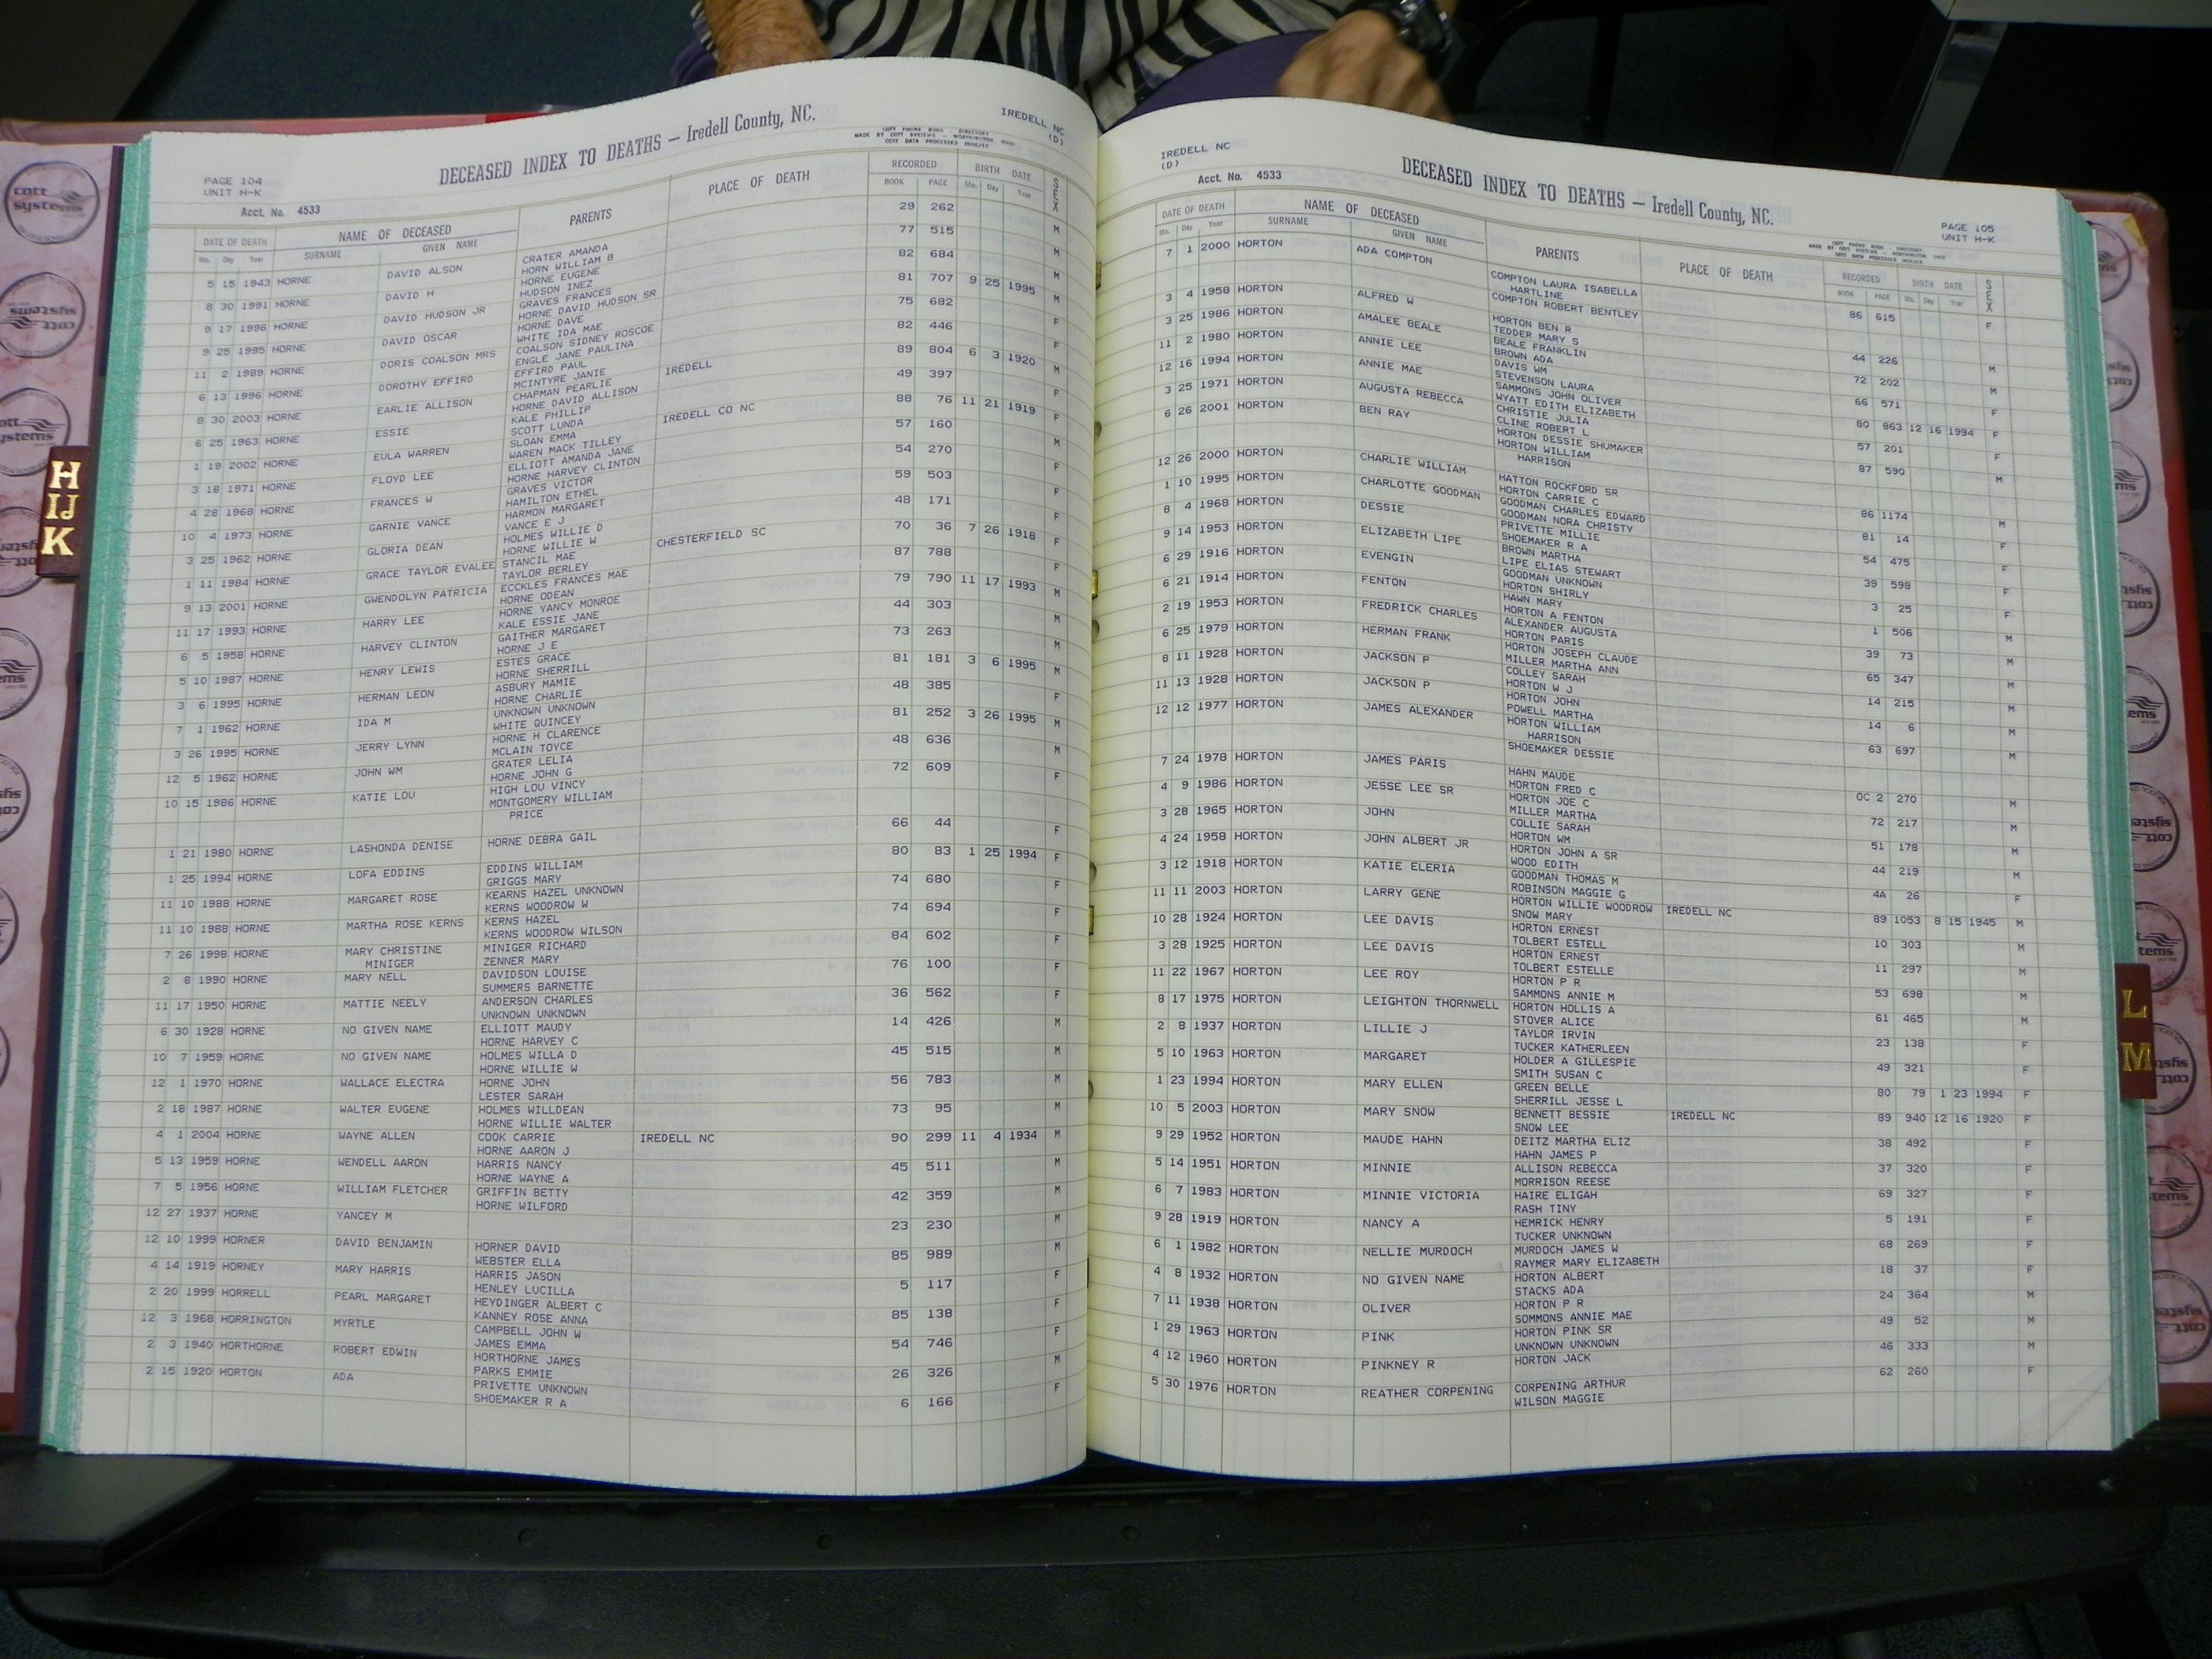 IREDELL NC
(D)
DECEASED INDEX TO DEATHS — Iredell County, NC.
COTT PHONE BOOK DIRECTORY
MADE BY COTT SYSTEMS — WORTHINGTON, OHIO
COTT DATA PROCESSED INDEXES
PAGE 104
UNIT H-K
Acct. No. 4533
DATE OF DEATH NAME OF DECEASED PARENTS PLACE OF DEATH RECORDED BIRTH DATE SEX
Mo. Day Year SURNAME GIVEN NAME BOOK PAGE Mo. Day Year
5 15 1943 HORNE DAVID ALSON CRATER AMANDA 29 262 M
HORN WILLIAM B
8 30 1991 HORNE DAVID H HORNE EUGENE 77 515 M
HUDSON INEZ
9 17 1996 HORNE DAVID HUDSON JR GRAVES FRANCES 82 684 M
HORNE DAVID HUDSON SR
9 25 1995 HORNE DAVID OSCAR HORNE DAVE 81 707 9 25 1995 M
WHITE IDA MAE
11 2 1989 HORNE DORIS COALSON MRS COALSON SIDNEY ROSCOE 75 682 F
ENGLE JANE PAULINA
6 13 1996 HORNE DOROTHY EFFIRD EFFIRD PAUL 82 446 F
MCINTYRE JANIE
8 30 2003 HORNE EARLIE ALLISON CHAPMAN PEARLIE IREDELL 89 804 6 3 1920 M
HORNE DAVID ALLISON
6 25 1963 HORNE ESSIE KALE PHILLIP 49 397 F
SCOTT LUNDA
1 19 2002 HORNE EULA WARREN SLOAN EMMA IREDELL CO NC 88 76 11 21 1919 F
WAREN MACK TILLEY
3 18 1971 HORNE FLOYD LEE ELLIOTT AMANDA JANE 57 160 M
HORNE HARVEY CLINTON
4 28 1968 HORNE FRANCES W GRAVES VICTOR 54 270 F
HAMILTON ETHEL
10 4 1973 HORNE GARNIE VANCE HARMON MARGARET 59 503 F
VANCE E J
3 25 1962 HORNE GLORIA DEAN HOLMES WILLIE D 48 171 F
HORNE WILLIE W
1 11 1984 HORNE GRACE TAYLOR EVALEE STANCIL MAE CHESTERFIELD SC 70 36 7 26 1918 F
TAYLOR BERLEY
9 13 2001 HORNE GWENDOLYN PATRICIA ECCKLES FRANCES MAE 87 788 F
HORNE ODEAN
11 17 1993 HORNE HARRY LEE HORNE YANCY MONROE 79 790 11 17 1993 M
KALE ESSIE JANE
6 5 1958 HORNE HARVEY CLINTON GAITHER MARGARET 44 303 M
HORNE J E
5 10 1987 HORNE HENRY LEWIS ESTES GRACE 73 263 M
HORNE SHERRILL
3 6 1995 HORNE HERMAN LEON ASBURY MAMIE 81 181 3 6 1995 M
HORNE CHARLIE
7 1 1962 HORNE IDA M UNKNOWN UNKNOWN 48 385 F
WHITE QUINCEY
3 26 1995 HORNE JERRY LYNN HORNE H CLARENCE 81 252 3 26 1995 M
MCLAIN TOYCE
12 5 1962 HORNE JOHN WM GRATER LELIA 48 636 M
HORNE JOHN G
10 15 1986 HORNE KATIE LOU HIGH LOU VINCY 72 609 F
MONTGOMERY WILLIAM
PRICE
1 21 1980 HORNE LASHONDA DENISE HORNE DEBRA GAIL 66 44 F
1 25 1994 HORNE LOFA EDDINS EDDINS WILLIAM 80 83 1 25 1994 F
GRIGGS MARY
11 10 1988 HORNE MARGARET ROSE KEARNS HAZEL UNKNOWN 74 680 F
KERNS WOODROW W
11 10 1988 HORNE MARTHA ROSE KERNS KERNS HAZEL 74 694 F
KERNS WOODROW WILSON
7 26 1998 HORNE MARY CHRISTINE MINIGER RICHARD 84 602 F
MINIGER ZENNER MARY
2 8 1990 HORNE MARY NELL DAVIDSON LOUISE 76 100 F
SUMMERS BARNETTE
11 17 1950 HORNE MATTIE NEELY ANDERSON CHARLES 36 562 F
UNKNOWN UNKNOWN
6 30 1928 HORNE NO GIVEN NAME ELLIOTT MAUDY 14 426 M
HORNE HARVEY C
10 7 1959 HORNE NO GIVEN NAME HOLMES WILLA D 45 515 M
HORNE WILLIE W
12 1 1970 HORNE WALLACE ELECTRA HORNE JOHN 56 783 M
LESTER SARAH
2 18 1987 HORNE WALTER EUGENE HOLMES WILLDEAN 73 95 M
HORNE WILLIE WALTER
4 1 2004 HORNE WAYNE ALLEN COOK CARRIE IREDELL NC 90 299 11 4 1934 M
HORNE AARON J
5 13 1959 HORNE WENDELL AARON HARRIS NANCY 45 511 M
HORNE WAYNE A
7 5 1956 HORNE WILLIAM FLETCHER GRIFFIN BETTY 42 359 M
HORNE WILFORD
12 27 1937 HORNE YANCEY M 23 230 M
12 10 1999 HORNER DAVID BENJAMIN HORNER DAVID 85 989 M
WEBSTER ELLA
4 14 1919 HORNEY MARY HARRIS HARRIS JASON 5 117 F
HENLEY LUCILLA
2 20 1999 HORRELL PEARL MARGARET HEYDINGER ALBERT C 85 138 F
KANNEY ROSE ANNA
12 3 1968 HORRINGTON MYRTLE CAMPBELL JOHN W 54 746 F
JAMES EMMA
2 3 1940 HORTHORNE ROBERT EDWIN HORTHORNE JAMES 26 326 M
PARKS EMMIE
2 15 1920 HORTON ADA PRIVETTE UNKNOWN 6 166 F
SHOEMAKER R A
IREDELL NC
(D)
DECEASED INDEX TO DEATHS — Iredell County, NC.
Acct. No. 4533
PAGE 105
UNIT H-K
COTT PHONE BOOK DIRECTORY
MADE BY COTT SYSTEMS — WORTHINGTON, OHIO
COTT DATA PROCESSED INDEXES
DATE OF DEATH NAME OF DECEASED PARENTS PLACE OF DEATH RECORDED BIRTH DATE SEX
Mo. Day Year SURNAME GIVEN NAME BOOK PAGE Mo. Day Year
7 1 2000 HORTON ADA COMPTON COMPTON LAURA ISABELLA 86 615 F
HARTLINE
COMPTON ROBERT BENTLEY
3 4 1958 HORTON ALFRED W HORTON BEN R 44 226 M
TEDDER MARY S
3 25 1986 HORTON AMALEE BEALE BEALE FRANKLIN 72 202 M
BROWN ADA
11 2 1980 HORTON ANNIE LEE DAVIS WM 66 571 F
STEVENSON LAURA
12 16 1994 HORTON ANNIE MAE SAMMONS JOHN OLIVER 80 863 12 16 1994 F
WYATT EDITH ELIZABETH
3 25 1971 HORTON AUGUSTA REBECCA CHRISTIE JULIA 57 201 F
CLINE ROBERT L
6 26 2001 HORTON BEN RAY HORTON DESSIE SHUMAKER 87 590 M
HORTON WILLIAM
HARRISON
12 26 2000 HORTON CHARLIE WILLIAM HATTON ROCKFORD SR 86 1174 M
HORTON CARRIE C
1 10 1995 HORTON CHARLOTTE GOODMAN GOODMAN CHARLES EDWARD 81 14 F
GOODMAN NORA CHRISTY
8 4 1968 HORTON DESSIE PRIVETTE MILLIE 54 475 F
SHOEMAKER R A
9 14 1953 HORTON ELIZABETH LIPE BROWN MARTHA 39 598 F
LIPE ELIAS STEWART
6 29 1916 HORTON EVENGIN GOODMAN UNKNOWN 3 25 F
HORTON SHIRLY
6 21 1914 HORTON FENTON HAWN MARY 1 506 M
HORTON A FENTON
2 19 1953 HORTON FREDRICK CHARLES ALEXANDER AUGUSTA 39 73 M
HORTON PARIS
6 25 1979 HORTON HERMAN FRANK HORTON JOSEPH CLAUDE 65 347 M
MILLER MARTHA ANN
8 11 1928 HORTON JACKSON P COLLEY SARAH 14 215 M
HORTON W J
11 13 1928 HORTON JACKSON P HORTON JOHN 14 6 M
POWELL MARTHA
12 12 1977 HORTON JAMES ALEXANDER HORTON WILLIAM 63 697 M
HARRISON
SHOEMAKER DESSIE
7 24 1978 HORTON JAMES PARIS HAHN MAUDE OC 2 270 M
HORTON FRED C
4 9 1986 HORTON JESSE LEE SR HORTON JOE C 72 217 M
MILLER MARTHA
3 28 1965 HORTON JOHN COLLIE SARAH 51 178 M
HORTON WM
4 24 1958 HORTON JOHN ALBERT JR HORTON JOHN A SR 44 219 M
WOOD EDITH
3 12 1918 HORTON KATIE ELERIA GOODMAN THOMAS M 4A 26 F
ROBINSON MAGGIE G
11 11 2003 HORTON LARRY GENE HORTON WILLIE WOODROW IREDELL NC 89 1053 8 15 1945 M
SNOW MARY
10 28 1924 HORTON LEE DAVIS HORTON ERNEST 10 303 M
TOLBERT ESTELL
3 28 1925 HORTON LEE DAVIS HORTON ERNEST 11 297 M
TOLBERT ESTELLE
11 22 1967 HORTON LEE ROY HORTON P R 53 698 M
SAMMONS ANNIE M
8 17 1975 HORTON LEIGHTON THORNWELL HORTON HOLLIS A 61 465 M
STOVER ALICE
2 8 1937 HORTON LILLIE J TAYLOR IRVIN 23 138 F
TUCKER KATHERLEEN
5 10 1963 HORTON MARGARET HOLDER A GILLESPIE 49 321 F
SMITH SUSAN C
1 23 1994 HORTON MARY ELLEN GREEN BELLE 80 79 1 23 1994 F
SHERRILL JESSE L
10 5 2003 HORTON MARY SNOW BENNETT BESSIE IREDELL NC 89 940 12 16 1920 F
SNOW LEE
9 29 1952 HORTON MAUDE HAHN DEITZ MARTHA ELIZ 38 492 F
HAHN JAMES P
5 14 1951 HORTON MINNIE ALLISON REBECCA 37 320 F
MORRISON REESE
6 7 1983 HORTON MINNIE VICTORIA HAIRE ELIGAH 69 327 F
RASH TINY
9 28 1919 HORTON NANCY A HEMRICK HENRY 5 191 F
TUCKER UNKNOWN
6 1 1982 HORTON NELLIE MURDOCH MURDOCH JAMES W 68 269 F
RAYMER MARY ELIZABETH
4 8 1932 HORTON NO GIVEN NAME HORTON ALBERT 18 37 F
STACKS ADA
7 11 1938 HORTON OLIVER HORTON P R 24 364 M
SOMMONS ANNIE MAE
1 29 1963 HORTON PINK HORTON PINK SR 49 52 M
UNKNOWN UNKNOWN
4 12 1960 HORTON PINKNEY R HORTON JACK 46 333 M
5 30 1976 HORTON REATHER CORPENING CORPENING ARTHUR 62 260 F
WILSON MAGGIE
H
IJ
K
L
M
cott
systems